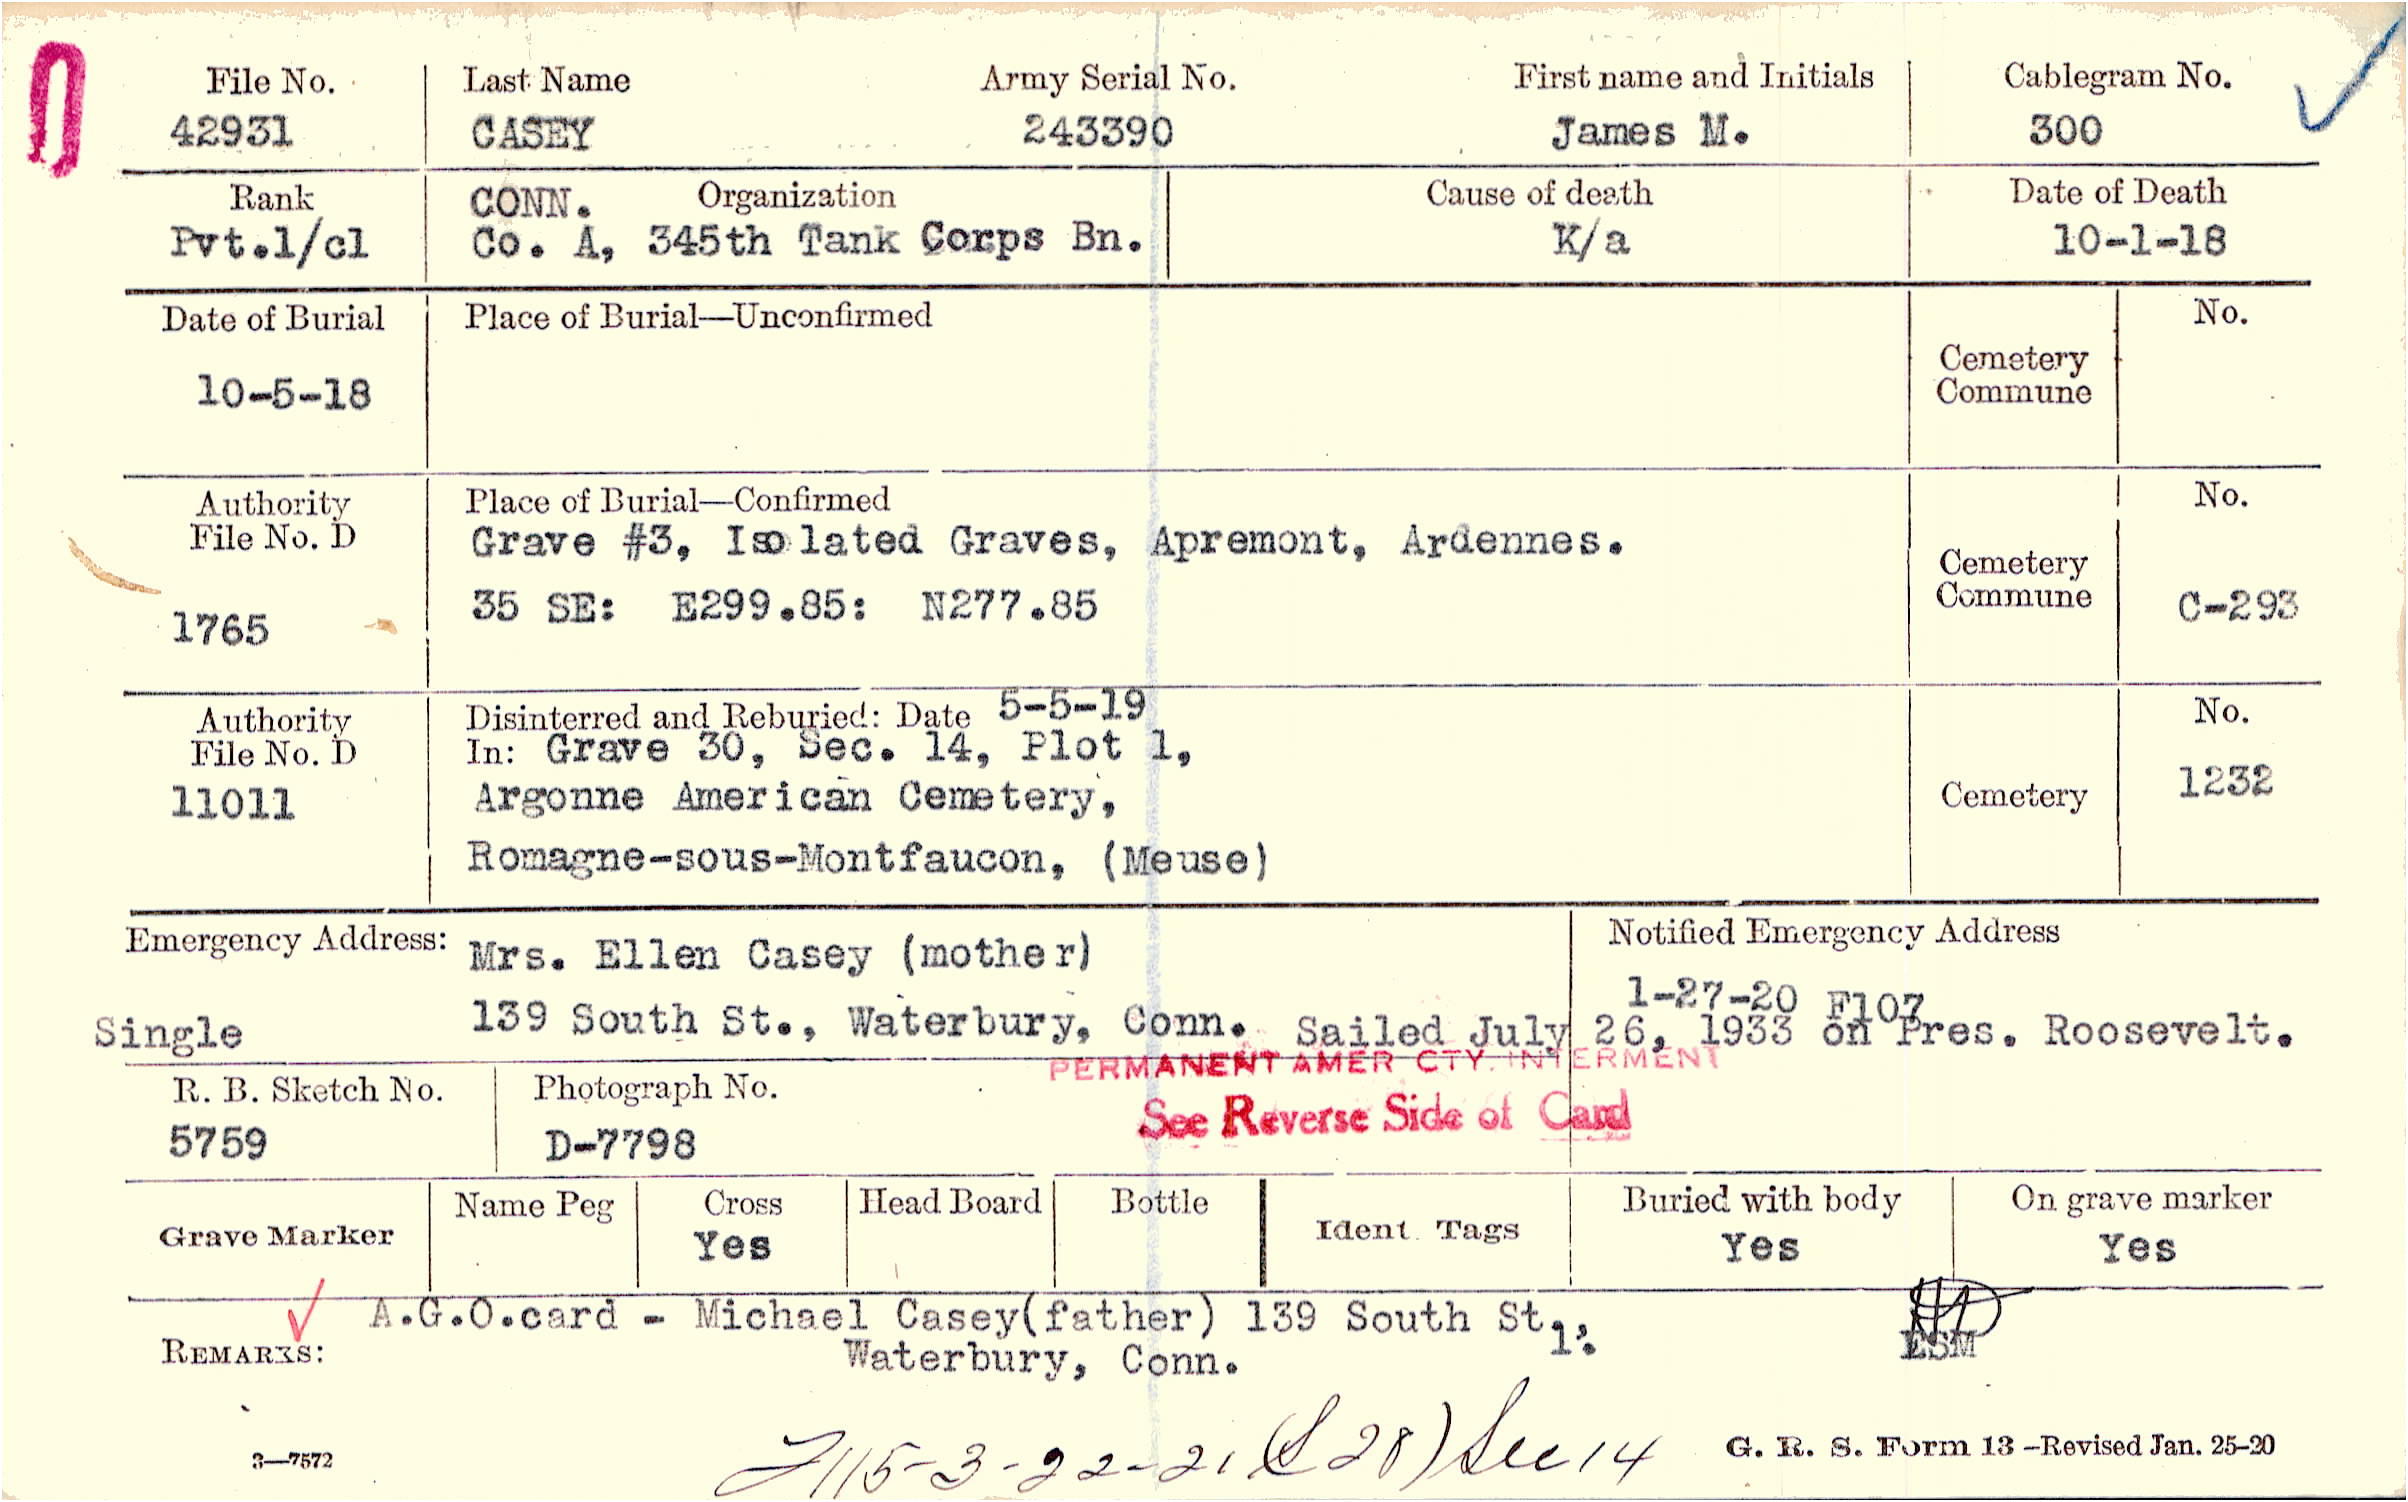 File No. Last Name Army Serial No. First name and Initials Cablegram No.
42931 CASEY 243390 James M. 300
Rank CONN. Organization Cause of death Date of Death
Pvt.1/cl Co. A, 345th Tank Corps Bn. K/a 10-1-18
Date of Burial Place of Burial—Unconfirmed No.
10-5-18 Cemetery
Commune
Authority Place of Burial—Confirmed No.
File No. D Grave #3, Isolated Graves, Apremont, Ardennes.
Cemetery
1765 35 SE: E299.85: N277.85 Commune C-293
Authority Disinterred and Reburied: Date 5-5-19 No.
File No. D In: Grave 30, Sec. 14, Plot 1,
11011 Argonne American Cemetery, Cemetery 1232
Romagne-sous-Montfaucon, (Meuse)
Emergency Address: Mrs. Ellen Casey (mother) Notified Emergency Address
1-27-20 F107
Single 139 South St., Waterbury, Conn. Sailed July 26, 1933 on Pres. Roosevelt.
PERMANENT AMER CTY. INTERMENT
R. B. Sketch No. Photograph No. See Reverse Side of Card
5759 D-7798
Grave Marker Name Peg Cross Head Board Bottle Ident. Tags Buried with body On grave marker
Yes Yes Yes
REMARKS: A.G.O.card - Michael Casey(father) 139 South St.,
Waterbury, Conn. 1. ESM
3—7572 115-3-22-21 (S 28) Sec 14 G. R. S. Form 13 -Revised Jan. 25-20